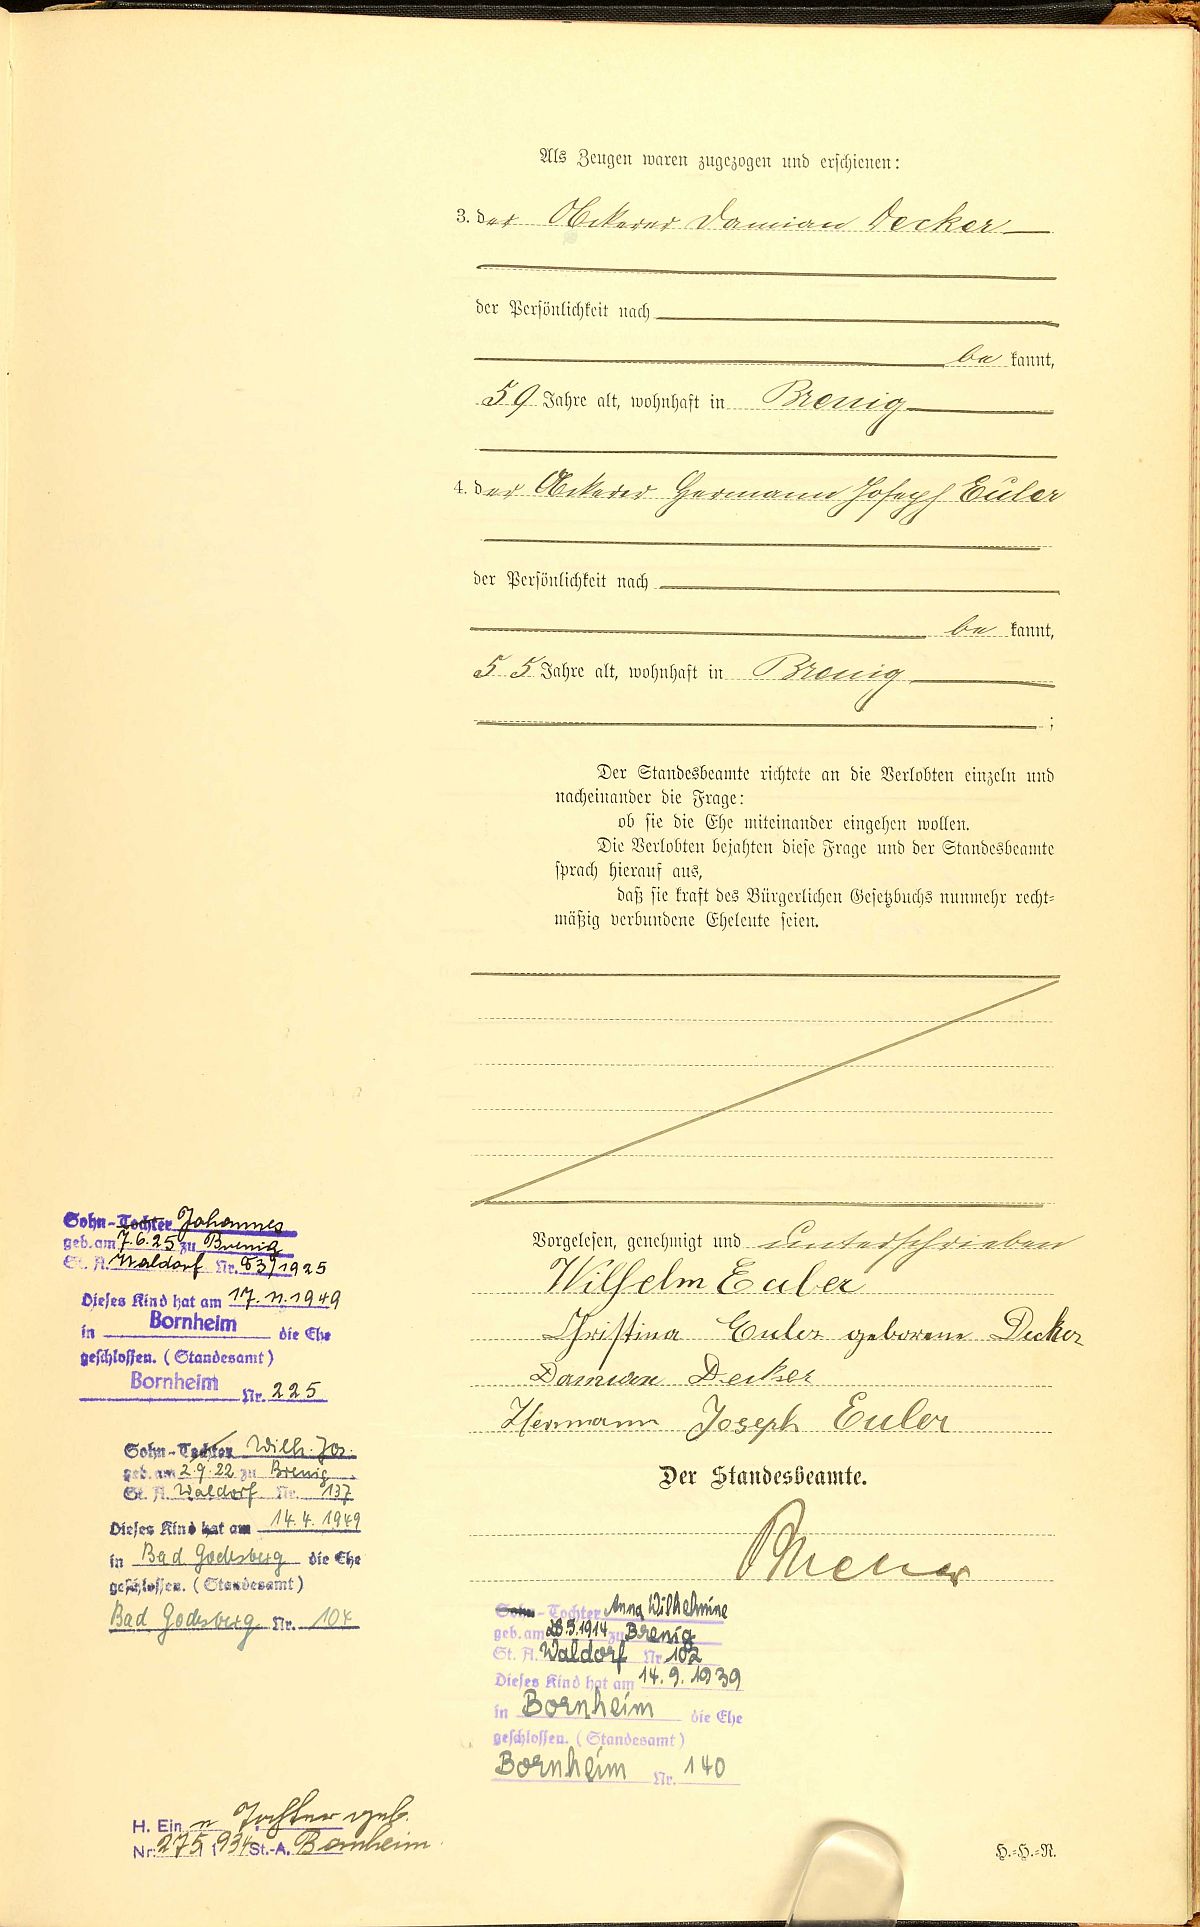 Als Zeugen waren zugezogen und erschienen:
3. der Ackerer Damian Decker
der Persönlichkeit nach
be kannt,
59 Jahre alt, wohnhaft in Brenig
4. der Ackerer Hermann Joseph Euler
der Persönlichkeit nach
be kannt,
55 Jahre alt, wohnhaft in Brenig
;
Der Standesbeamte richtete an die Verlobten einzeln und
nacheinander die Frage:
ob sie die Ehe miteinander eingehen wollen.
Die Verlobten bejahten diese Frage und der Standesbeamte
sprach hierauf aus,
daß sie kraft des Bürgerlichen Gesetzbuchs nunmehr recht-
mäßig verbundene Eheleute seien.
Vorgelesen, genehmigt und unterschrieben
Wilhelm Euler
Christina Euler geborene Decker
Damian Decker
Hermann Joseph Euler
Der Standesbeamte.
Sohn-Tochter Johannes
geb. am 7.6.25 zu Brenig
St. A. Waldorf Nr. 83/1925
Dieses Kind hat am 17.11.1949
in Bornheim die Ehe
geschlossen. (Standesamt)
Bornheim Nr. 225
Sohn-Tochter Wilh. Jos.
geb. am 2.9.22 zu Brenig
St. A. Waldorf Nr. 137
Dieses Kind hat am 14.4.1949
in Bad Godesberg die Ehe
geschlossen. (Standesamt)
Bad Godesberg Nr. 104
Sohn-Tochter Anna Wilhelmine
geb. am 28.5.1914 zu Brenig
St. A. Waldorf Nr. 102
Dieses Kind hat am 14.9.1939
in Bornheim die Ehe
geschlossen. (Standesamt)
Bornheim Nr. 140
H. Ein e Tochter geb.
Nr. 275 1934 St.-A. Bornheim
H.-H.-R.